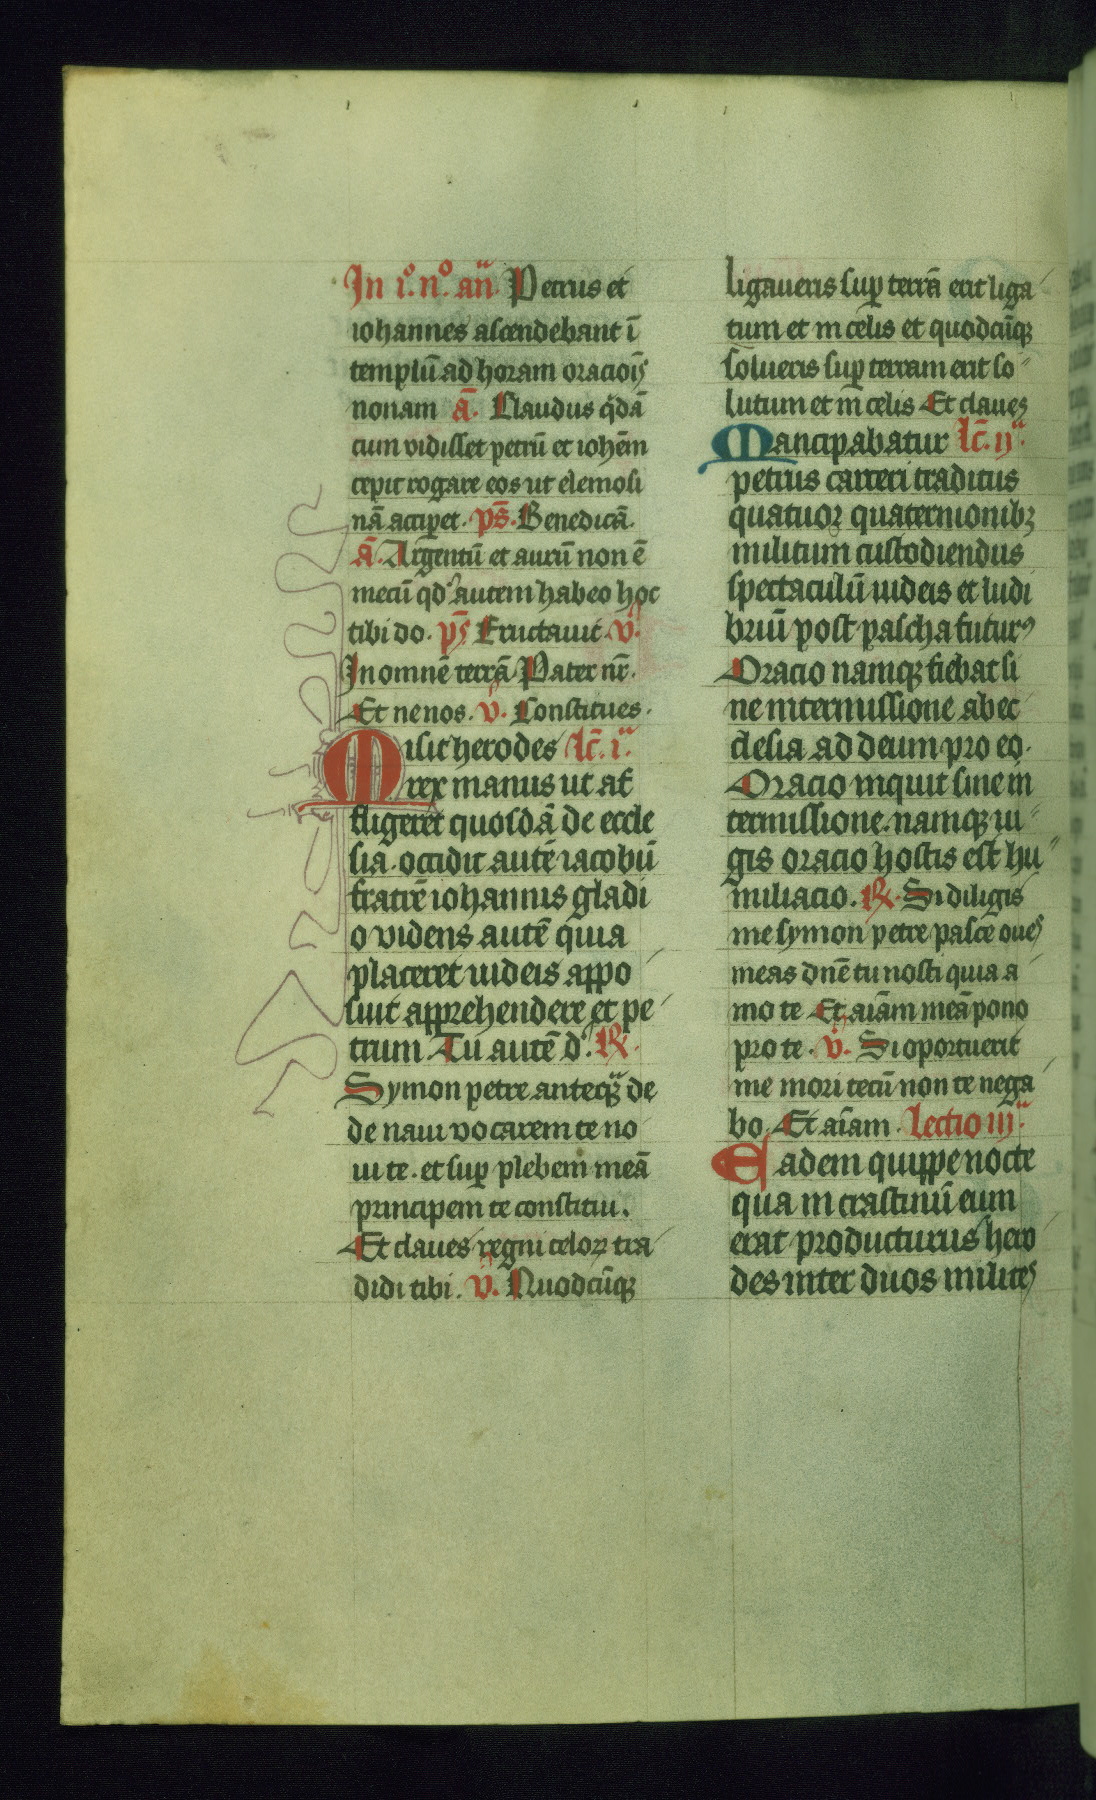 In i°. n°. an̄. Petrus et
iohannes ascendebant ī
templū ad horam oracioīs
nonam ā. Claudus q̇dā
cum vidisset petrū et iohēm
cepit rogare eos ut elemosi
nā acciperet. p̄s. Benedicā.
ā. Argentū et aurū non ē
mecū qd' autem habeo hoc
tibi do. p̄s Eructauit. v̄.
In omnē terrā. Pater nr̄.
Et ne nos. v̄. Constitues.
Misit herodes lc̄. i.ᵃ
rex manus ut af
fligeret quosdā de eccle
sia. occidit autē iacobū
fratrē iohannis gladi
o videns autē quia
placeret iudeis appo
suit apprehendere et pe
trum. Tu autē d'. R̸.
Symon petre anteq̈ꝫ de
de naui vocarem te no
ui te. et suꝑ plebem meā
principem te constitui.
Et claues regni celoꝝ tra
didi tibi. v̄. Quodcūqꝫ
ligaueris suꝑ terrā erit liga
tum et in celis et quodcūqꝫ
solueris suꝑ terram erit so
lutum et in celis Et claues
Mancipabatur lc̄. ijᵃ.
petrus carceri traditus
quatuor quaternionibꝫ
militum custodiendus
spectaculū iudeis et ludi
briū post pascha futurꝰ
Oracio namqꝫ fiebat si
ne intermissione ab ec
clesia ad deum pro eo.
Oracio inquit sine in
termissione. namqꝫ iu
gis oracio hostis est hu
miliacio. R̸. Si diligis
me symon petre pasce oues
meas dn̄e tu nosti quia a
mo te Et aīam meā pono
pro te. v̄. Si oportuerit
me mori tecū non te nega
bo. Et aīam. lectio iijᵃ.
Eadem quippe nocte
qua in crastinū eum
erat producturus hero
des inter duos milites